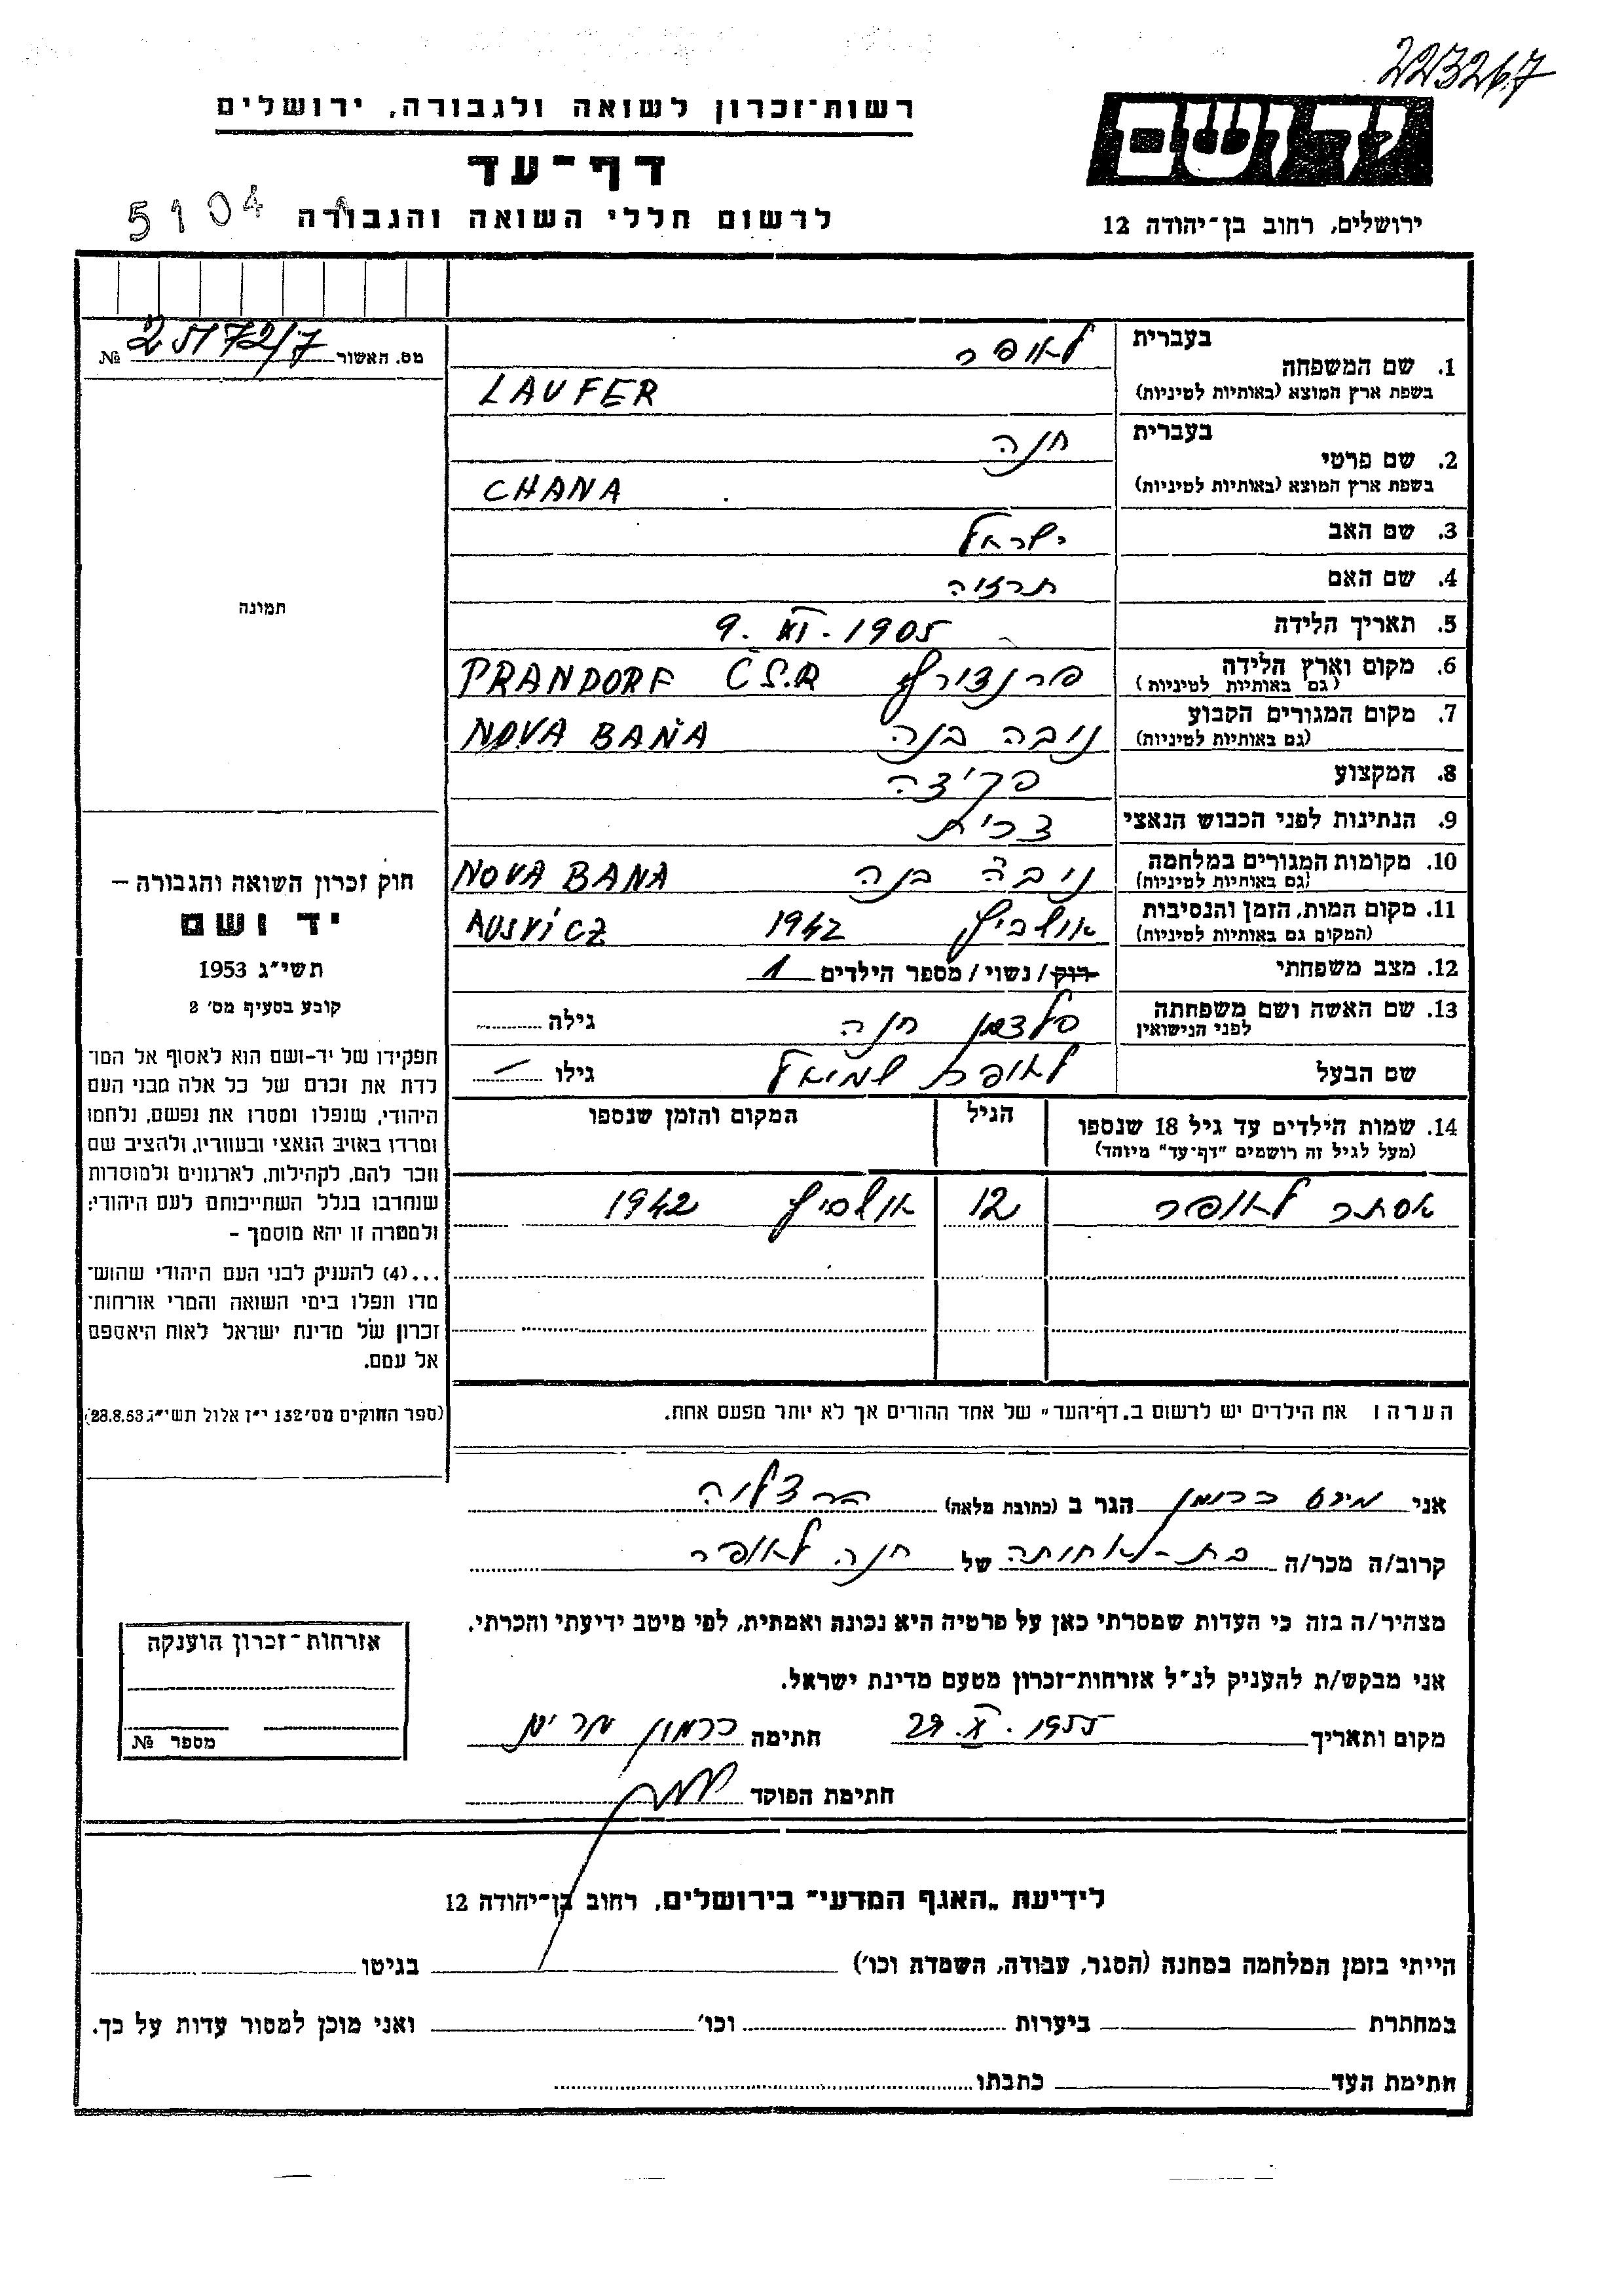 223267
רשות־זכרון לשואה ולגבורה, ירושלים
דף־עד
לרשום חללי השואה והגבורה
5104
ידושם
ירושלים, רחוב בן־יהודה 12
מס. האשור № 251172/7
תמונה
בעברית לאופר
1. שם המשפחה
בשפת ארץ המוצא (באותיות לטיניות) LAUFER
בעברית חנה
2. שם פרטי
בשפת ארץ המוצא (באותיות לטיניות) CHANA
3. שם האב ישראל
4. שם האם תרזיה
5. תאריך הלידה 9. XI. 1905
6. מקום וארץ הלידה פרנדורף PRANDORF ČS.R
(גם באותיות לטיניות)
7. מקום המגורים הקבוע נובה בנה NOVA BAŇA
(גם באותיות לטיניות)
8. המקצוע פקידה
9. הנתינות לפני הכבוש הנאצי צ'כית
10. מקומות המגורים במלחמה נובה בנה NOVA BANA
(גם באותיות לטיניות)
11. מקום המות, הזמן והנסיבות אושביץ 1942 AUSVICZ
(המקום גם באותיות לטיניות)
12. מצב משפחתי רווק/נשוי/מספר הילדים 1
13. שם האשה ושם משפחתה חנה גילה
לפני הנישואין
שם הבעל לאופר שמואל גילו —
14. שמות הילדים עד גיל 18 שנספו הגיל המקום והזמן שנספו
(מעל לגיל זה רושמים "דף־עד" מיוחד)
אסתר לאופר 12 אושביץ 1942
הערה: את הילדים יש לרשום ב„דף־העד" של אחד ההורים אך לא יותר מפעם אחת.
חוק זכרון השואה והגבורה —
יד ושם
תשי״ג 1953
קובע בסעיף מס׳ 2
תפקידו של יד־ושם הוא לאסוף אל המו־
לדת את זכרם של כל אלה מבני העם
היהודי, שנפלו ומסרו את נפשם, נלחמו
ומרדו באויב הנאצי ובעוזריו, ולהציב שם
וזכר להם, לקהילות, לארגונים ולמוסדות
שנחרבו בגלל השתייכותם לעם היהודי;
ולמטרה זו יהא מוסמך —
...(4) להעניק לבני העם היהודי שהוש־
מדו ונפלו בימי השואה והמרי אזרחות־
זכרון של מדינת ישראל לאות היאספם
אל עמם.
(ספר החוקים מס׳ 132 י״ז אלול תשי״ג 28.8.53)
אני כרמון הגר ב (כתובת מלאה) הרצליה
קרוב/ה מכר/ה בת-אחותה של חנה לאופר
מצהיר/ה בזה כי העדות שמסרתי כאן על פרטיה היא נכונה ואמתית, לפי מיטב ידיעתי והכרתי.
אני מבקש/ת להעניק לנ״ל אזרחות־זכרון מטעם מדינת ישראל.
מקום ותאריך 29. X. 1955 חתימה כרמון
חתימת הפוקד
אזרחות־זכרון הוענקה
מספר №
לידיעת „האגף המדעי" בירושלים, רחוב בן־יהודה 12
הייתי בזמן המלחמה במחנה (הסגר, עבודה, השמדה וכו׳) בגיטו
במחתרת ביערות וכו׳ ואני מוכן למסור עדות על כך.
חתימת העד כתבתו